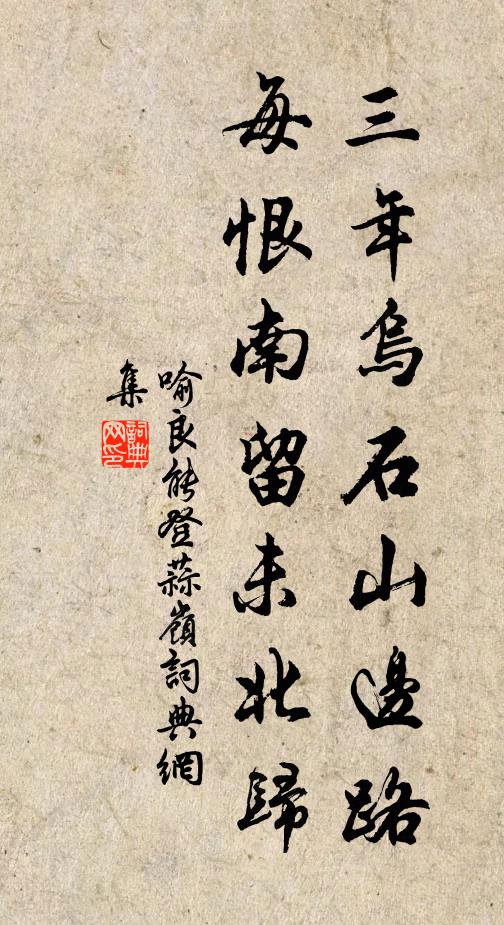 三年烏石山邊路
每恨南留未北歸
喻良能登蒜嶺詞典網
集
詞典
网印